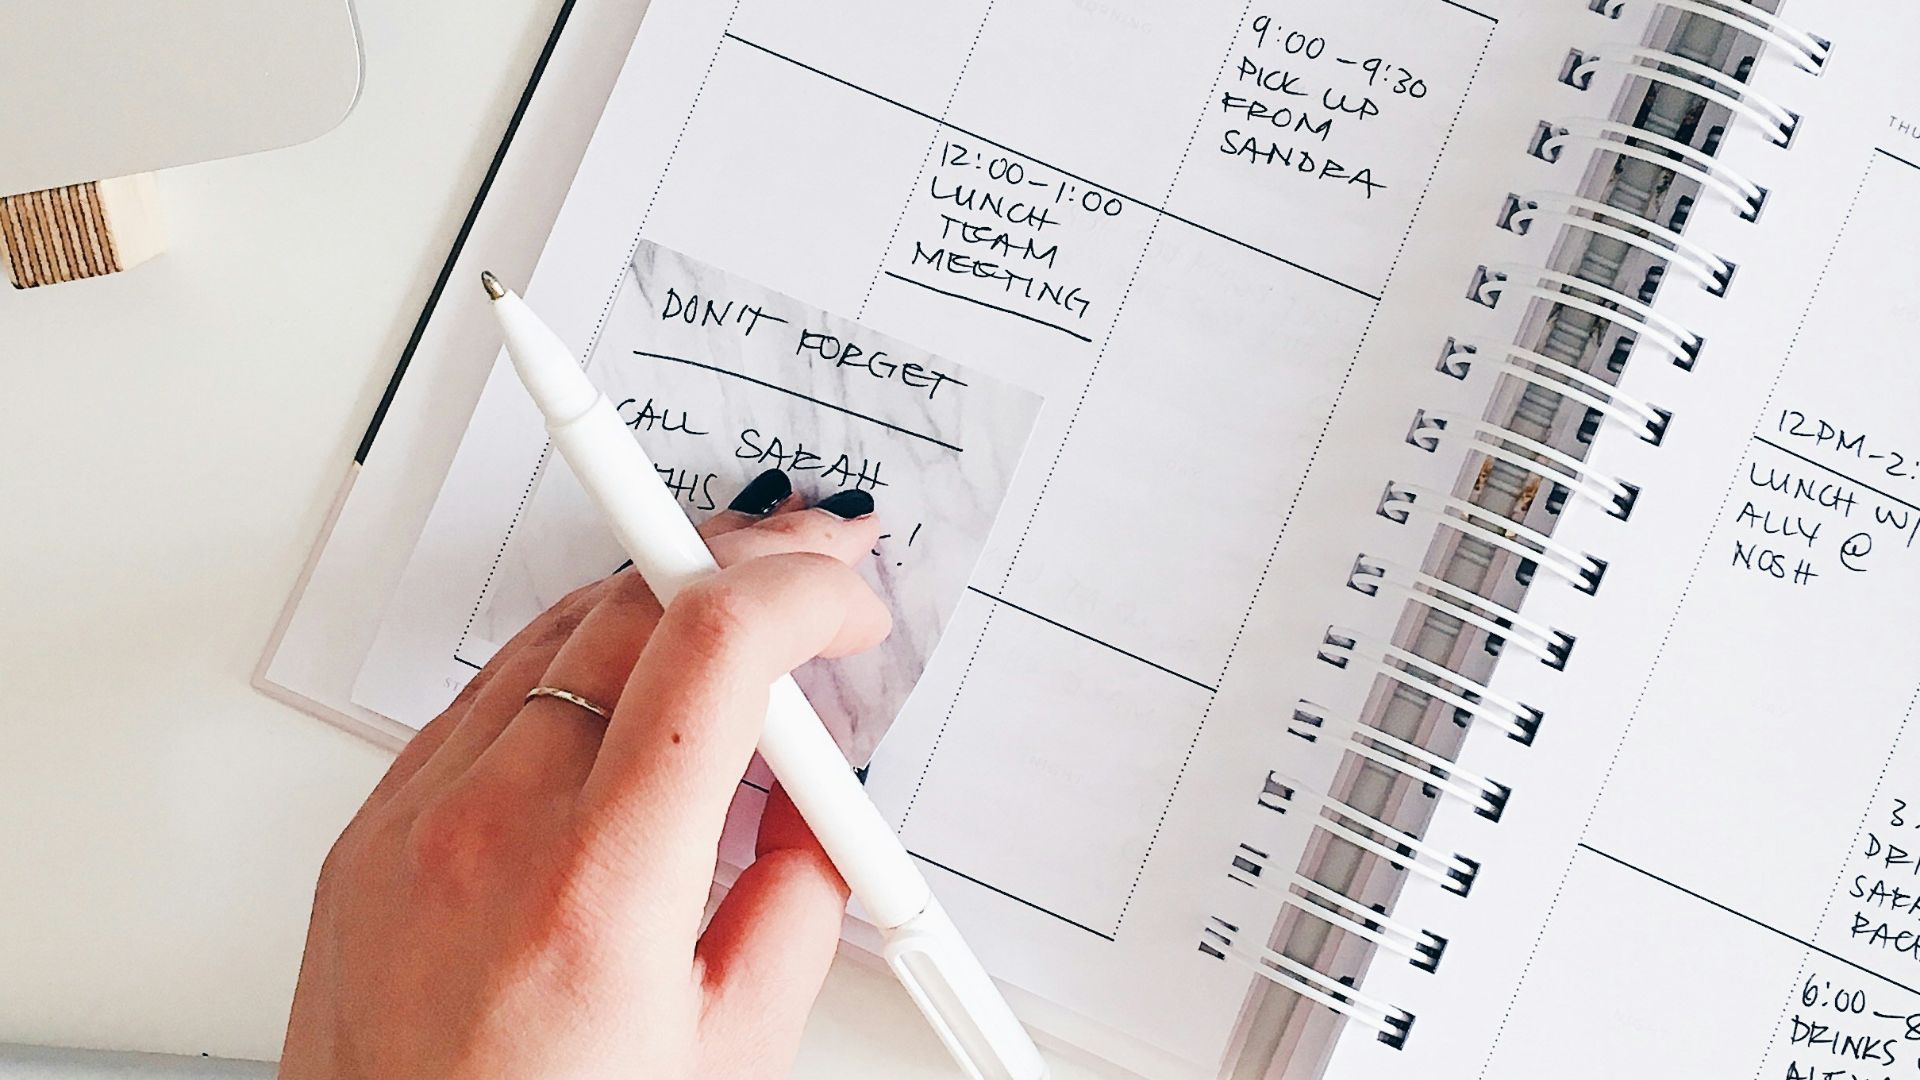 9:00-9:30
PICK UP
FROM
SANDRA
12:00-1:00
LUNCH
TEAM
MEETING
DON'T FORGET
CALL SARAH
THIS
!
12PM-2:
LUNCH W/
ALLY @
NOSH
3
6:00-8
DRINKS